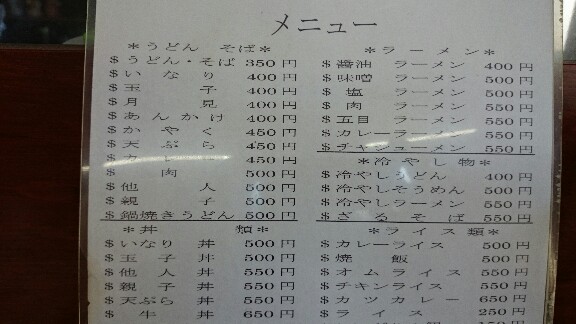 メニュー
＊うどん そば＊
$うどん・そば 350円
$いなり 400円
$玉子 400円
$月見 400円
$あんかけ 400円
$かやく 450円
$天ぷら 450円
$カレー 450円
$肉 500円
$他人 500円
$親子 500円
$鍋焼きうどん 500円
＊丼類＊
$いなり丼 500円
$玉子丼 500円
$他人丼 550円
$親子丼 550円
$天ぷら丼 550円
$牛丼 650円
＊ラーメン＊
$醤油 ラーメン 400円
$味噌 ラーメン 500円
$塩 ラーメン 500円
$肉 ラーメン 550円
$五目 ラーメン 550円
$カレーラーメン 550円
$チャシューメン 550円
＊冷やし物＊
$冷やしうどん 400円
$冷やしそうめん 500円
$冷やしラーメン 550円
$ざるそば 550円
＊ライス類＊
$カレーライス 500円
$焼飯 500円
$オムライス 550円
$チキンライス 550円
$カツカレー 650円
$ライス 250円